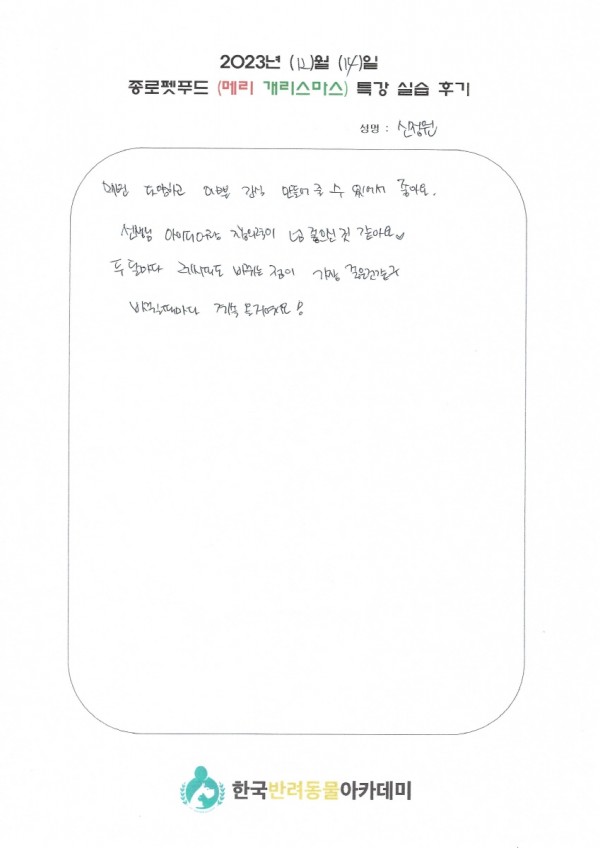 2023년 (12)월 (14)일
종로펫푸드 (메리 개리스마스) 특강 실습 후기
성명 : 신정원
매번 다양하고 이쁜 간식 만들어 줄 수 있어서 좋아요.
선생님 아이디어랑 창의력이 넘 좋으신 것 같아요♡
두 달마다 레시피도 바뀌는 점이 가장
바뀔때마다 계속
한국반려동물아카데미